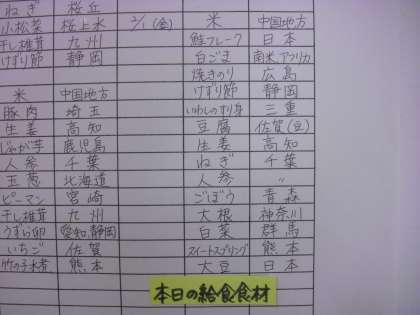 ねぎ 桜丘
小松菜 桜上水
干し椎茸 九州
けずり節 静岡
米 中国地方
豚肉 埼玉
生姜 高知
じゃが芋 鹿児島
人参 千葉
玉葱 北海道
ピーマン 宮崎
干し椎茸 九州
うずら卵 愛知・静岡
いちご 佐賀
竹の子水煮 熊本
2/1(金) 米 中国地方
鮭フレーク 日本
白ごま 南米アフリカ
焼きのり 広島
けずり節 静岡
いわしのすり身 三重
豆腐 佐賀(豆)
生姜 高知
ねぎ 千葉
人参 〃
ごぼう 青森
大根 神奈川
白菜 群馬
スイートスプリング 熊本
大豆 日本
本日の給食食材